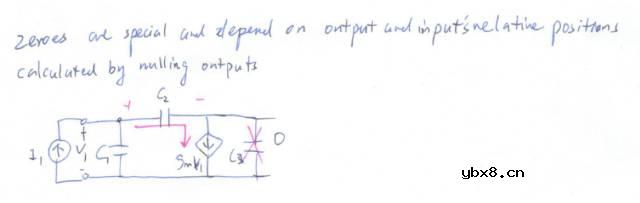 zeroes are special and depend on output and input's relative positions
calculated by nulling outputs
C2
+ -
I1 + V1 - C1 gmV1 C3 0
ybx8.cn